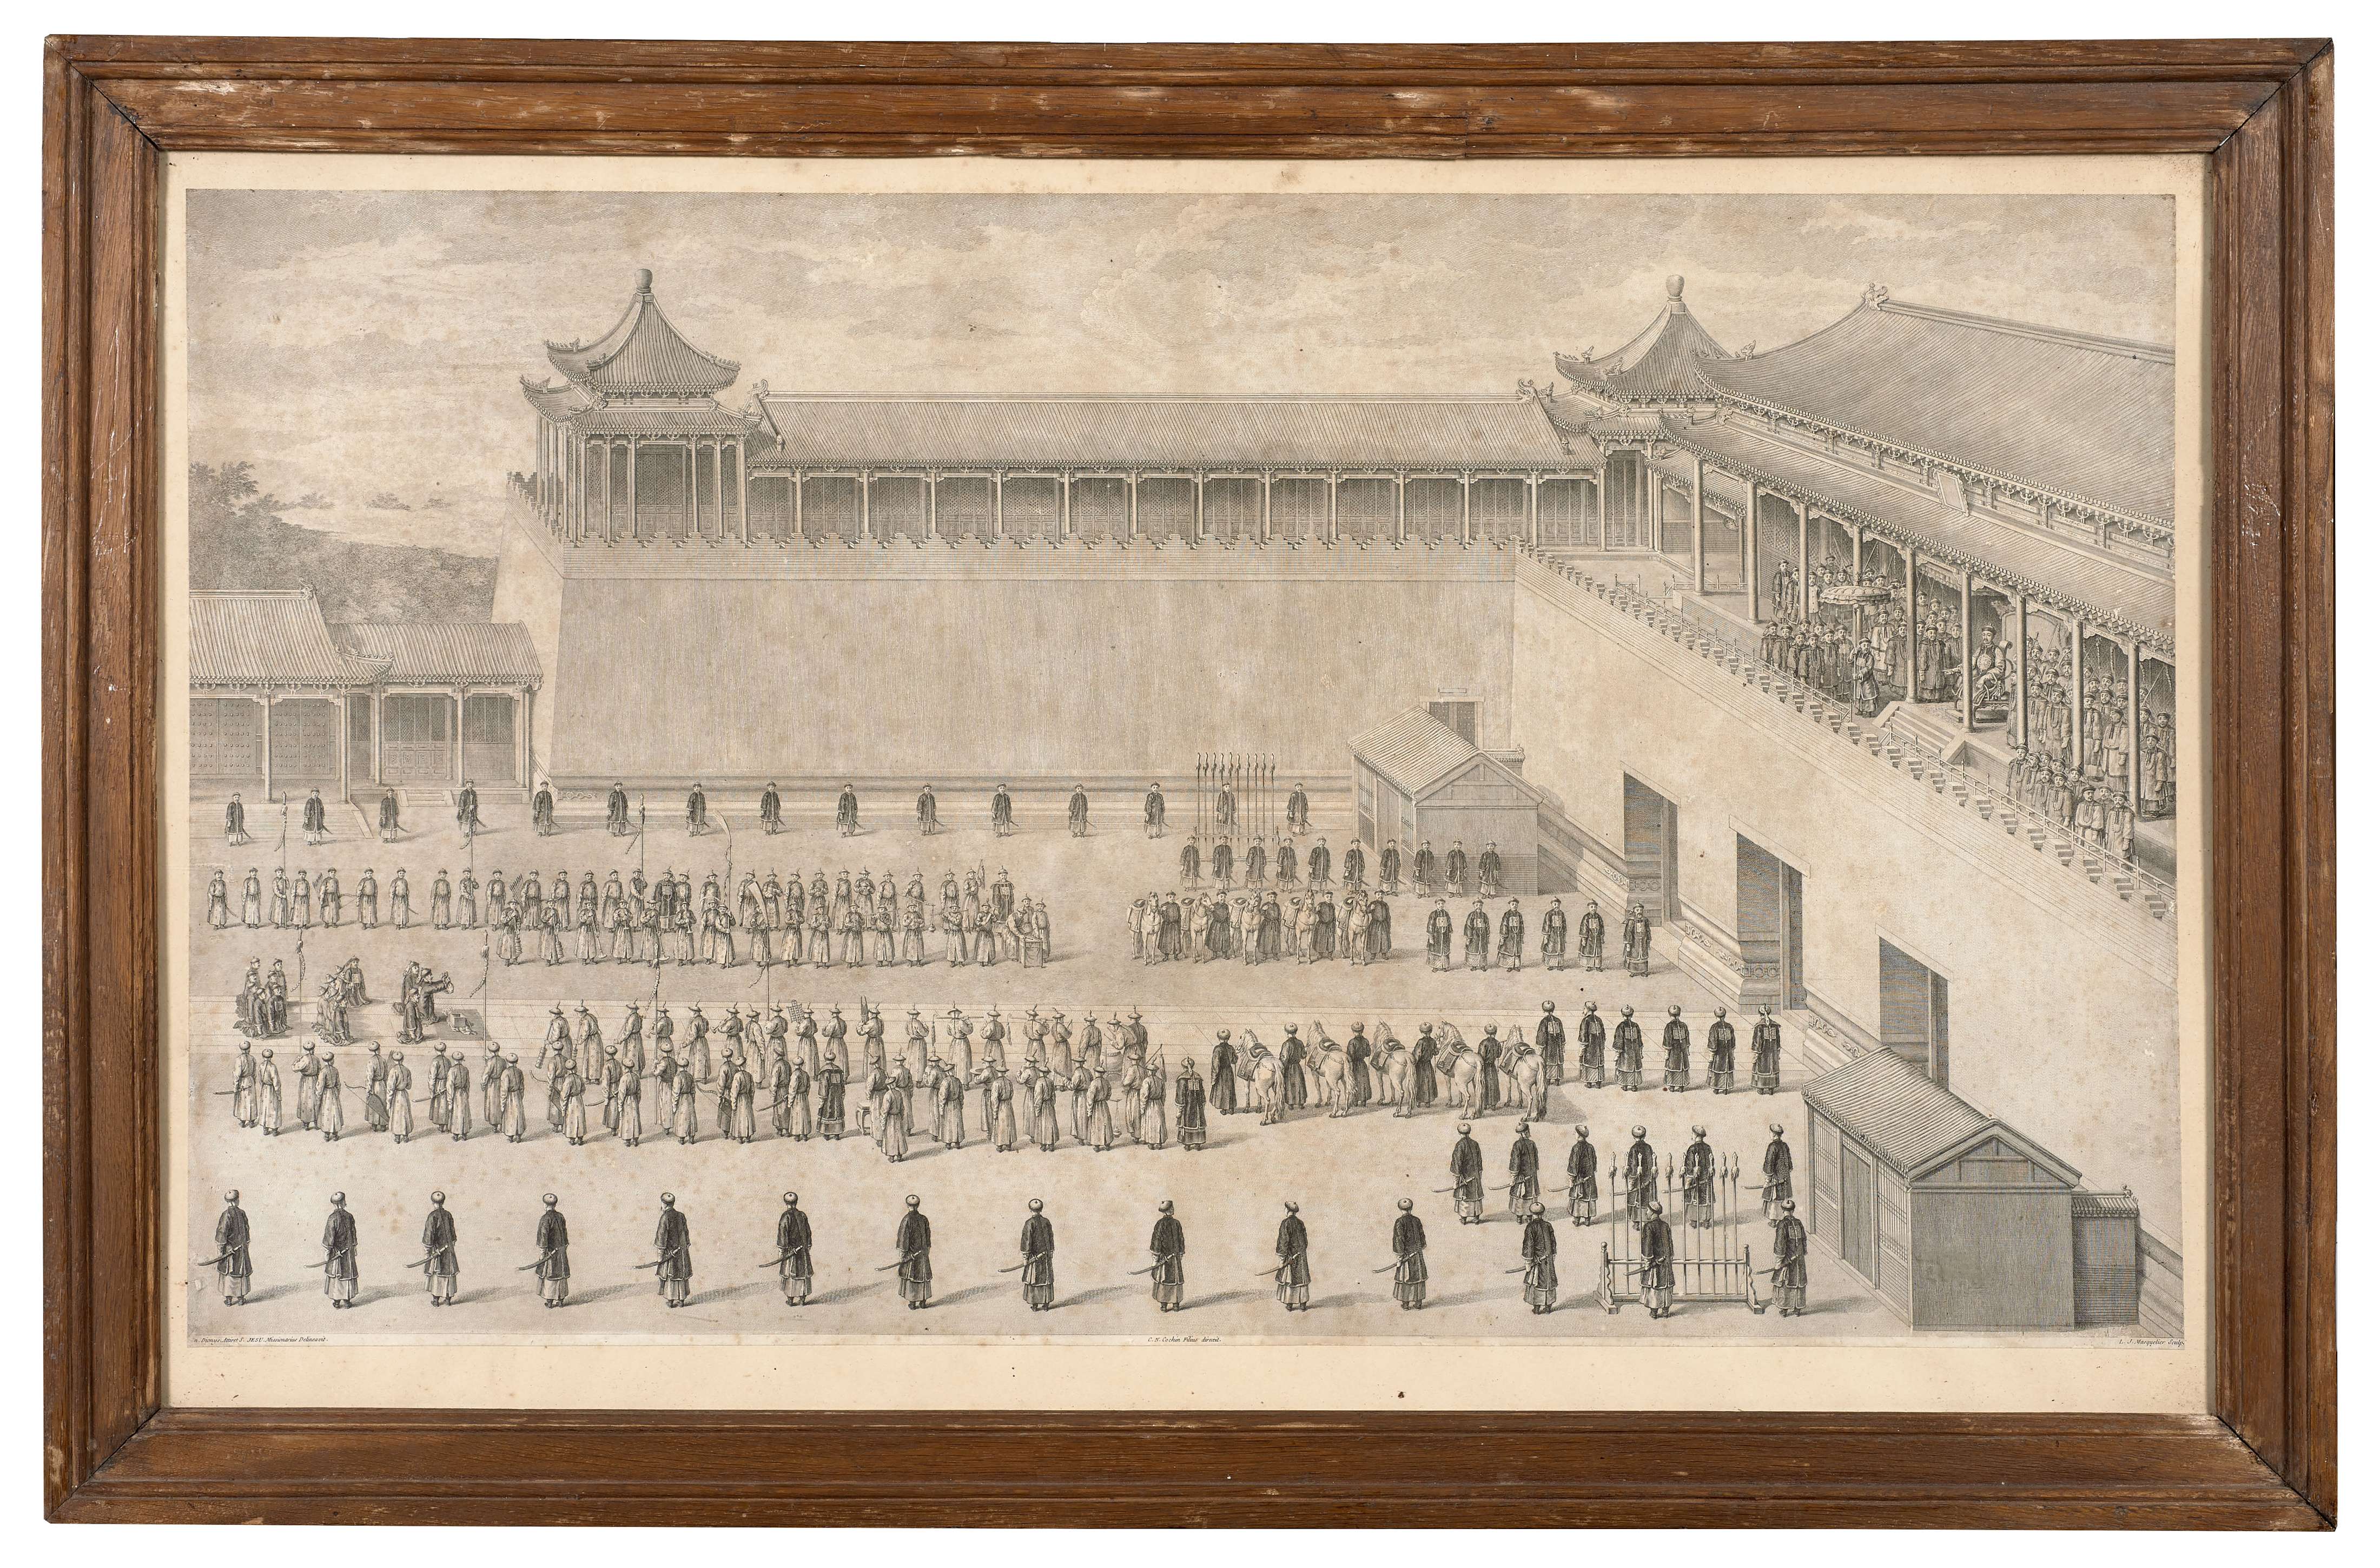 Dionys. Attiret S. JESU Missionarius Delineavit.
C. N. Cochin Filius direxit.
L. J. Masquelier Sculp.